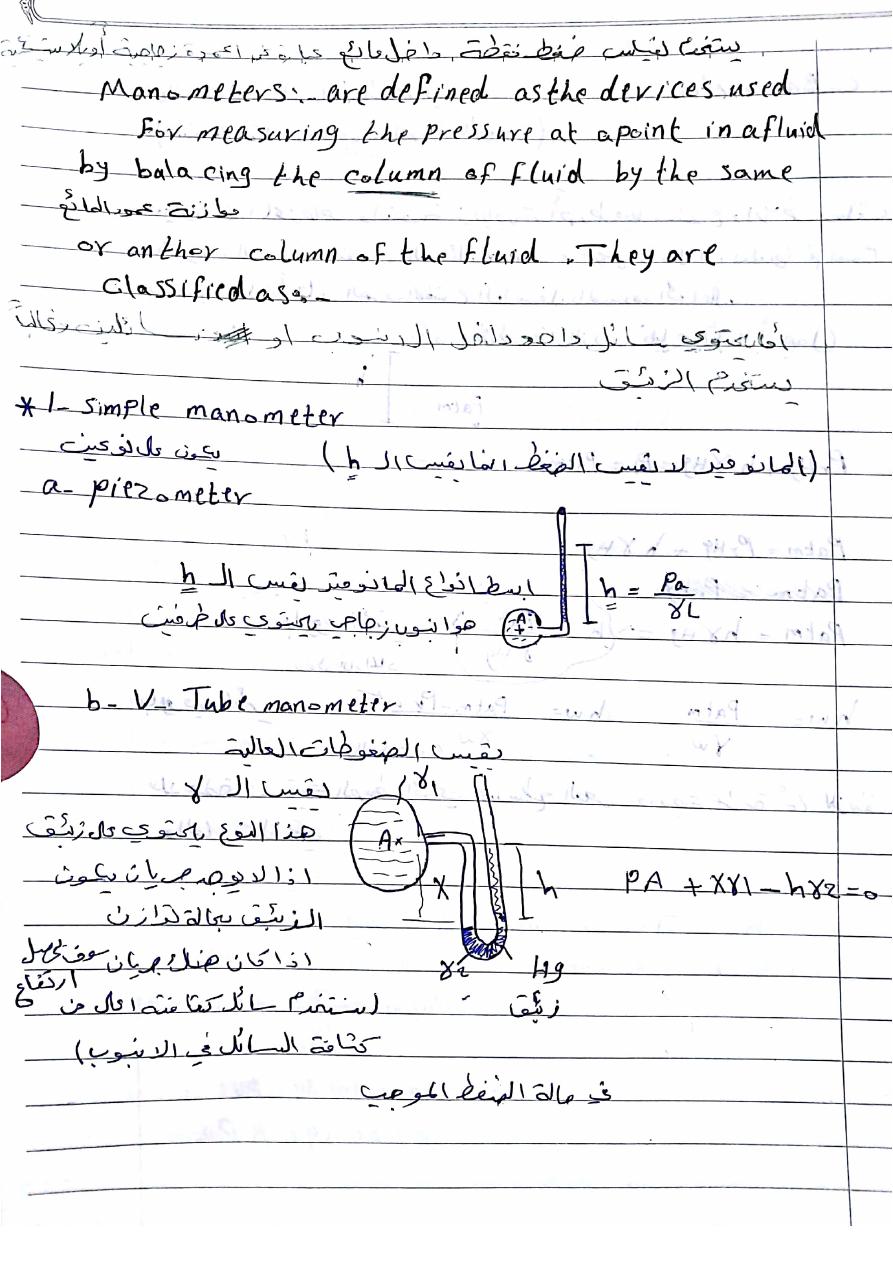 يستخدم لقياس ضغط نقطة داخل مائع عبارة عن اعمدة زجاجية أو بلاستيكية
Manometers:- are defined as the devices used
For measuring the pressure at a point in a fluid
by balacing the column of fluid by the same
موازنة عمود المائع
or anther column of the fluid . They are
Classified as:-
أما يحتوي سائل واحد داخل الانبوب او سائلين وغالباً
يستخدم الزئبق
* 1- simple manometer
(المانوميتر لا يقيس الضغط انما يقيس الـ h)
يكون على نوعين
a- piezometer
ابسط انواع المانوميتر يقيس الـ h
h = Pa / γL
هو انبوب زجاجي يحتوي على طرفين
A
b- V- Tube manometer
يقيس الضغوطات العالية
يقيس الـ γ
γ1
هذا النوع يحتوي على زئبق
A×
اذا لا يوجد جريان يكون
X
h
PA + Xγ1 - hγ2 = 0
الزئبق بحالة توازن
اذا كان هناك جريان سوف يحصل
ارتفاع
γ2
Hg
زئبق
(نستخدم سائل كثافته اعلى من
كثافة السائل في الانبوب)
في حالة الضغط الموجب